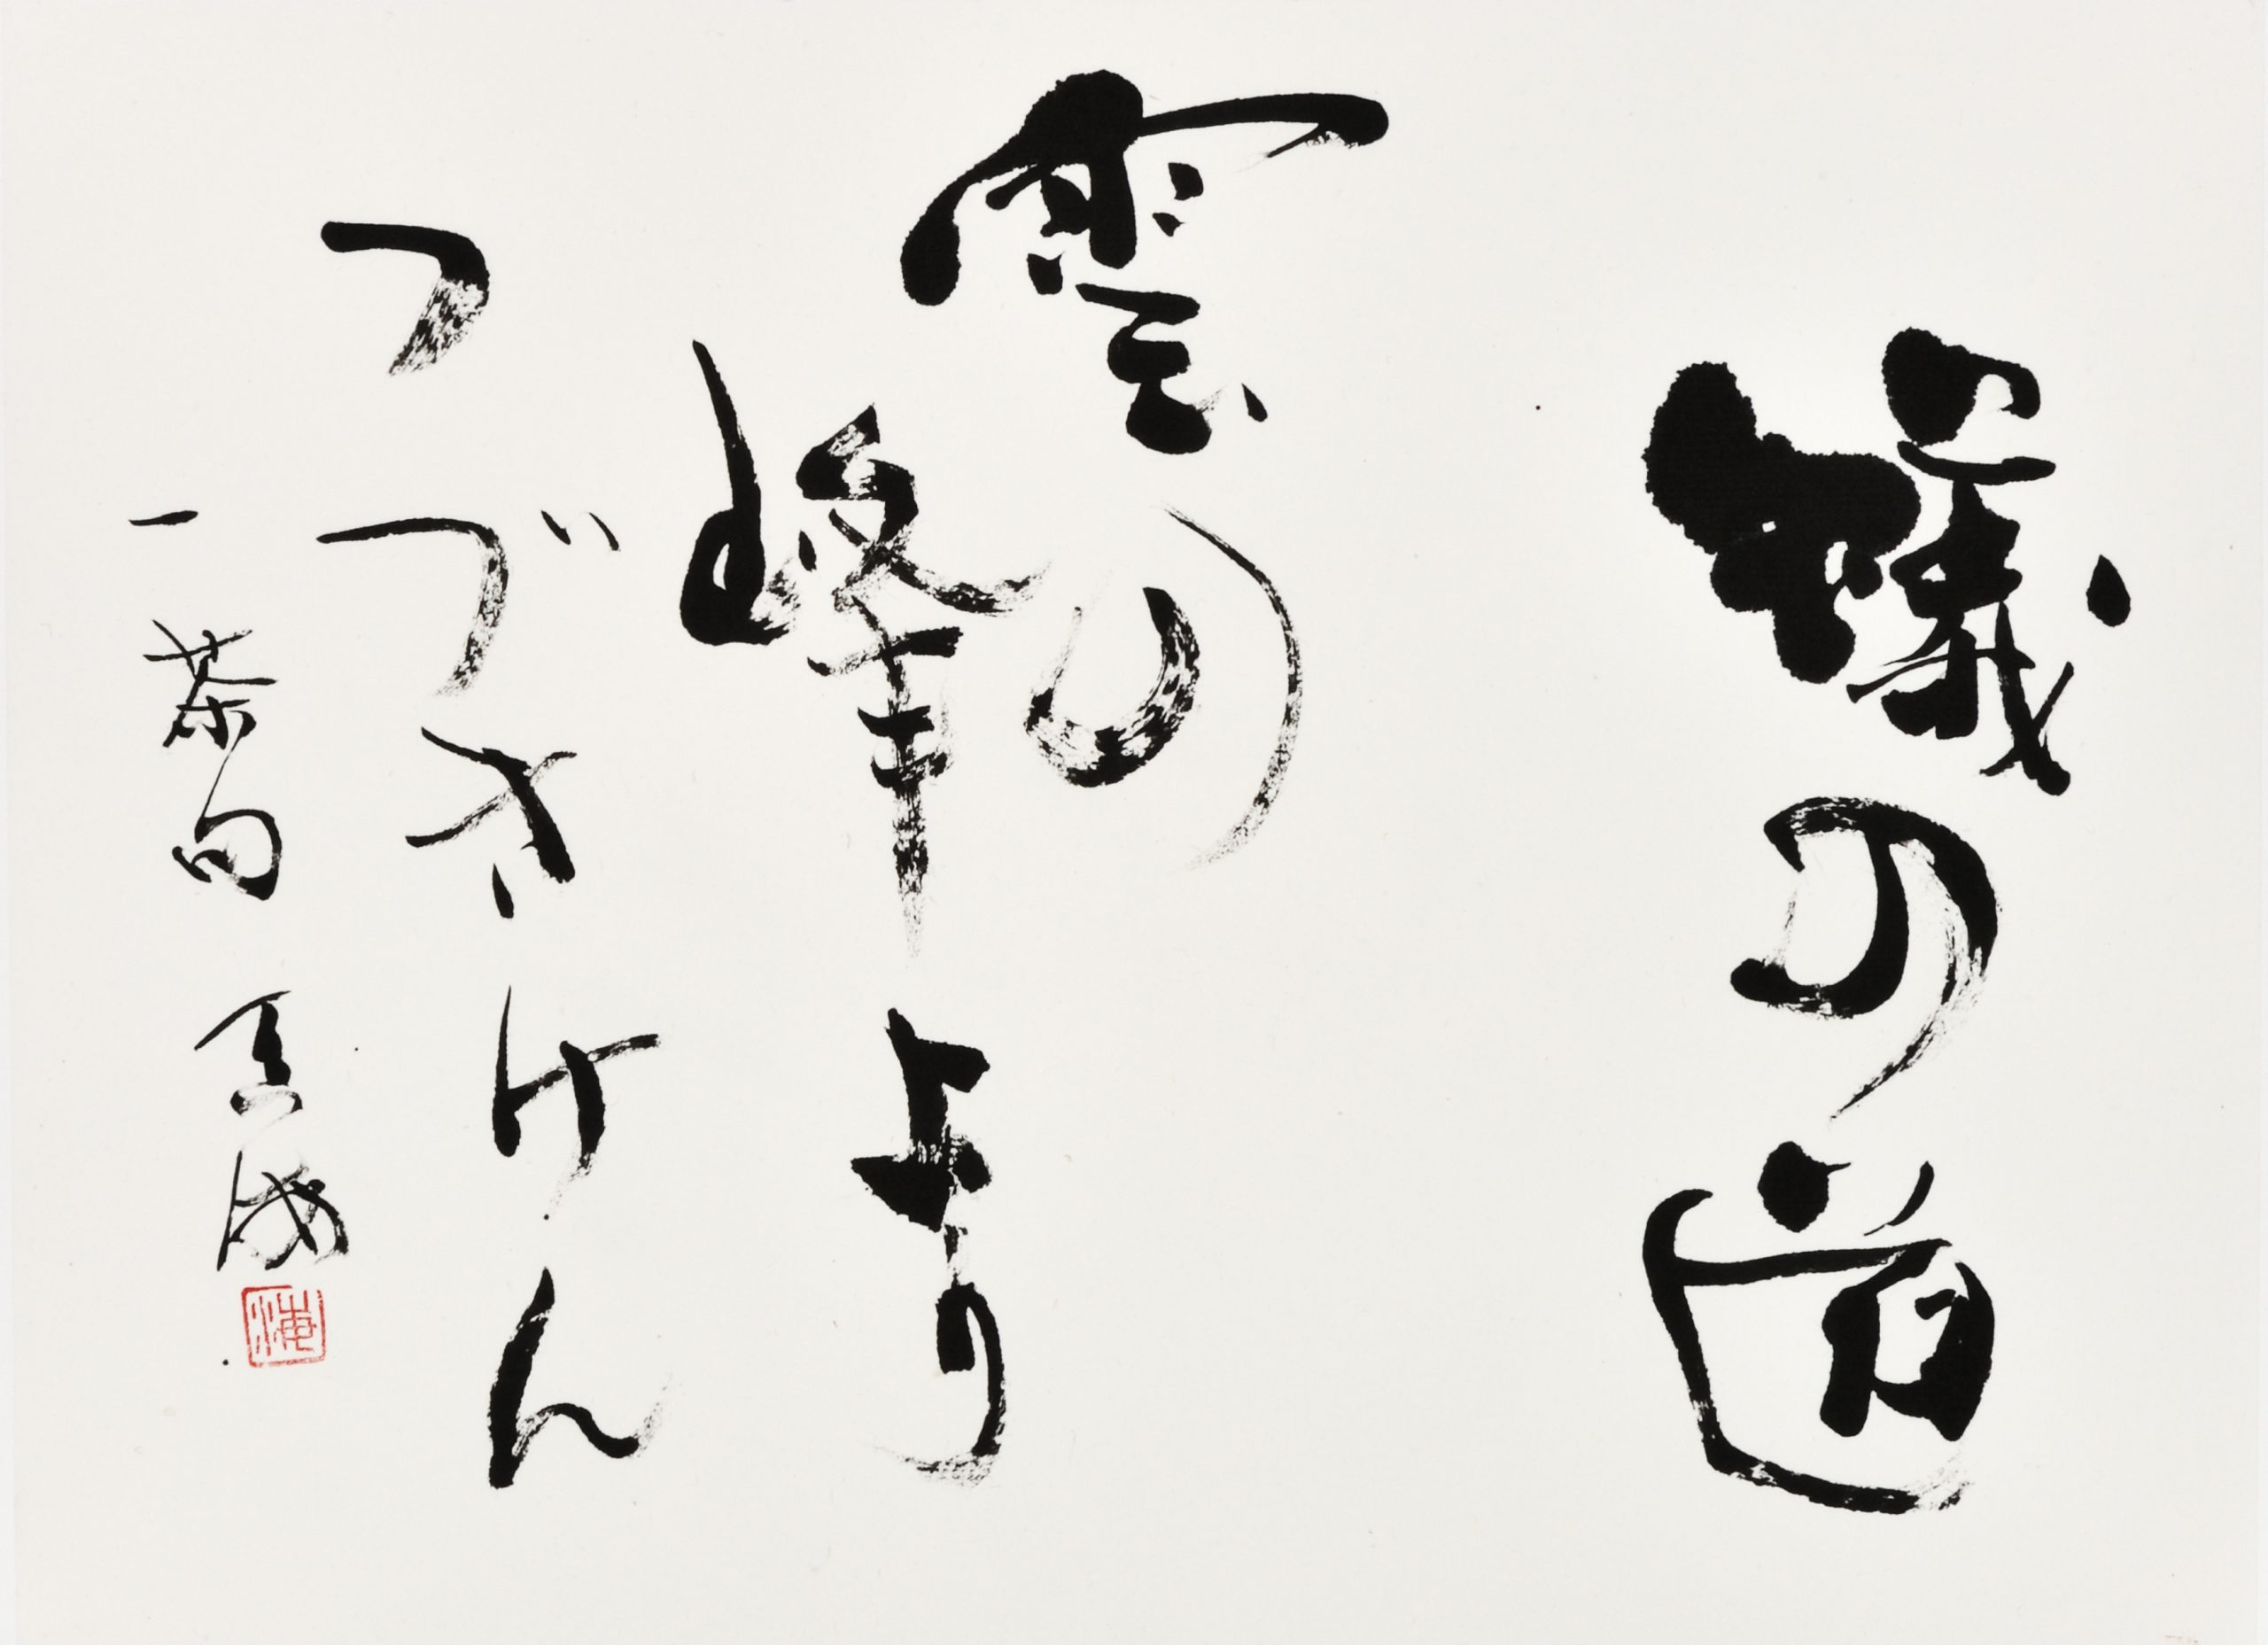 蟻の道
雲の
峰より
つづきけん
一茶句
海